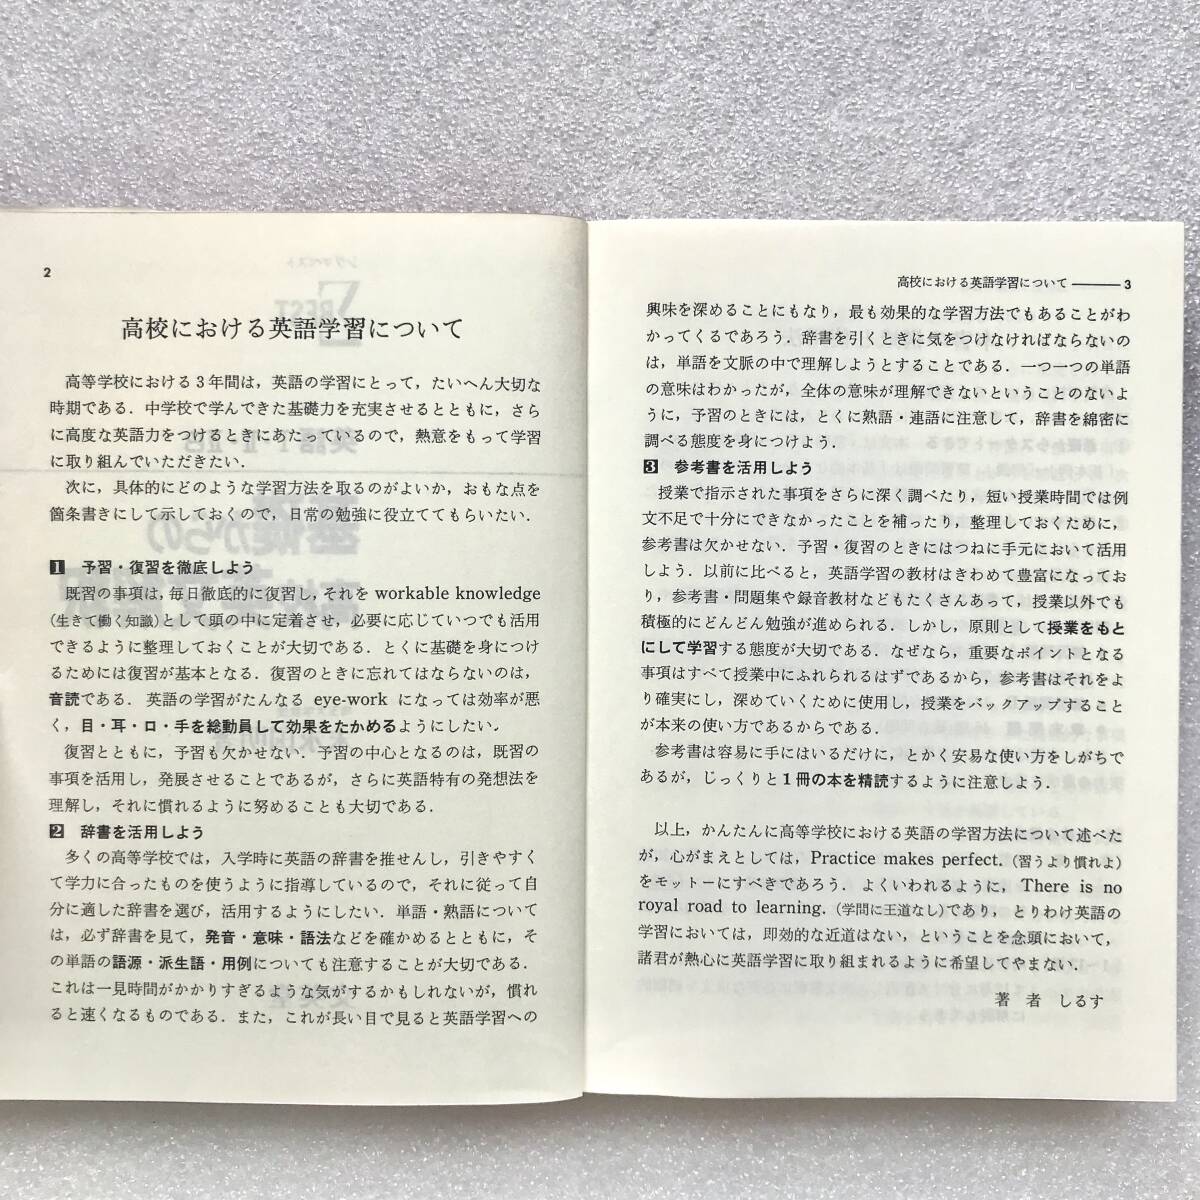 2
高校における英語学習について
高等学校における3年間は，英語の学習にとって，たいへん大切な
時期である．中学校で学んできた基礎力を充実させるとともに，さら
に高度な英語力をつけるときにあたっているので，熱意をもって学習
に取り組んでいただきたい．
次に，具体的にどのような学習方法を取るのがよいか，おもな点を
箇条書きにして示しておくので，日常の勉強に役立ててもらいたい．
1 予習・復習を徹底しよう
既習の事項は，毎日徹底的に復習し，それを workable knowledge
（生きて働く知識）として頭の中に定着させ，必要に応じていつでも活用
できるように整理しておくことが大切である．とくに基礎を身につけ
るためには復習が基本となる．復習のときに忘れてはならないのは，
音読である．英語の学習がたんなる eye-work になっては効率が悪
く，目・耳・口・手を総動員して効果をたかめるようにしたい．
復習とともに，予習も欠かせない．予習の中心となるのは，既習の
事項を活用し，発展させることであるが，さらに英語特有の発想法を
理解し，それに慣れるように努めることも大切である．
2 辞書を活用しよう
多くの高等学校では，入学時に英語の辞書を推せんし，引きやすく
て学力に合ったものを使うように指導しているので，それに従って自
分に適した辞書を選び，活用するようにしたい．単語・熟語について
は，必ず辞書を見て，発音・意味・語法などを確かめるとともに，そ
の単語の語源・派生語・用例についても注意することが大切である．
これは一見時間がかかりすぎるような気がするかもしれないが，慣れ
ると速くなるものである．また，これが長い目で見ると英語学習への
高校における英語学習について——3
興味を深めることにもなり，最も効果的な学習方法でもあることがわ
かってくるであろう．辞書を引くときに気をつけなければならないの
は，単語を文脈の中で理解しようとすることである．一つ一つの単語
の意味はわかったが，全体の意味が理解できないということのないよ
うに，予習のときには，とくに熟語・連語に注意して，辞書を綿密に
調べる態度を身につけよう．
3 参考書を活用しよう
授業で指示された事項をさらに深く調べたり，短い授業時間では例
文不足で十分にできなかったことを補ったり，整理しておくために，
参考書は欠かせない．予習・復習のときにはつねに手元において活用
しよう．以前に比べると，英語学習の教材はきわめて豊富になってお
り，参考書・問題集や録音教材などもたくさんあって，授業以外でも
積極的にどんどん勉強が進められる．しかし，原則として授業をもと
にして学習する態度が大切である．なぜなら，重要なポイントとなる
事項はすべて授業中にふれられるはずであるから，参考書はそれをよ
り確実にし，深めていくために使用し，授業をバックアップすること
が本来の使い方であるからである．
参考書は容易に手にはいるだけに，とかく安易な使い方をしがちで
あるが，じっくりと1冊の本を精読するように注意しよう．
以上，かんたんに高等学校における英語の学習方法について述べた
が，心がまえとしては，Practice makes perfect.（習うより慣れよ）
をモットーにすべきであろう．よくいわれるように，There is no
royal road to learning.（学問に王道なし）であり，とりわけ英語の
学習においては，即効的な近道はない，ということを念頭において，
諸君が熱心に英語学習に取り組まれるように希望してやまない．
著 者 しるす